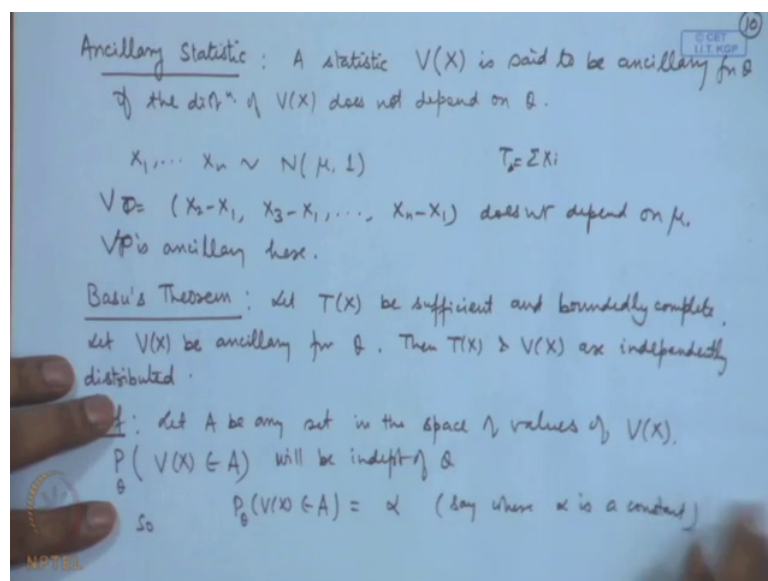 10
© CET
I.I.T. KGP
Ancillary Statistic : A statistic V(X) is said to be ancillary for θ
if the distn. of V(X) does not depend on θ.
X₁, ... Xₙ ~ N(μ, 1) T = ΣXi
V = (X₂-X₁, X₃-X₁, ..., Xₙ-X₁) doesn't depend on μ.
V is ancillary here.
Basu's Theorem : Let T(X) be sufficient and boundedly complete.
Let V(X) be ancillary for θ. Then T(X) & V(X) are independently
distributed.
f : Let A be any set in the space of values of V(X).
P_θ ( V(X) ∈ A) will be indept of θ
So P_θ (V(X) ∈ A) = α (say where α is a constant)
NPTEL